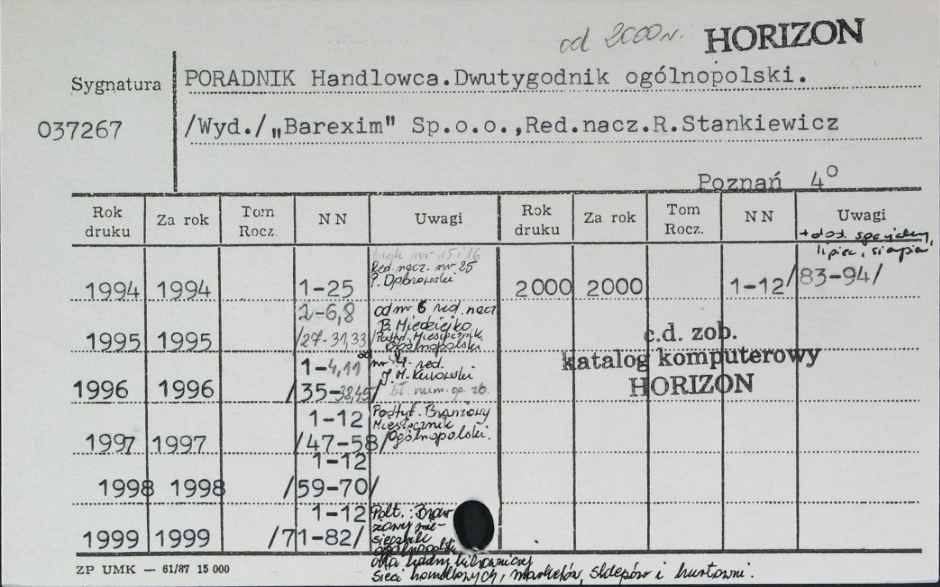 od 2000 r. HORIZON
Sygnatura PORADNIK Handlowca.Dwutygodnik ogólnopolski.
037267 /Wyd./„Barexim" Sp.o.o.,Red.nacz.R.Stankiewicz
Poznań 4°
Rok druku Za rok Tom Rocz. NN Uwagi Rok druku Za rok Tom Rocz. NN Uwagi
+ dod. specjalny, lipiec, sierpień
nr 15 i 16
1994 1994 1-25 Red. nacz. nr 25 2000 2000 1-12 /83-94/
1995 1995 2-6,8 /27-31,33/ od nr 6 red. nacz B. Miedziejko Podtyt. Miesięcznik ogólnopolski
c.d. zob.
katalog komputerowy
HORIZON
1996 1996 1-4,11 /35-38,45/ od nr 4. red. bł. num. op. zb.
1997 1997 1-12 /47-58/ Podtyt. Branżowy Miesięcznik Ogólnopolski.
1998 1998 1-12 /59-70/
1999 1999 1-12 /71-82/ Podt.: Branżowy miesięcznik ogólnopolski
dla kadry kierowniczej
sieci handlowych, marketów, sklepów i hurtowni.
ZP UMK — 61/87 15 000